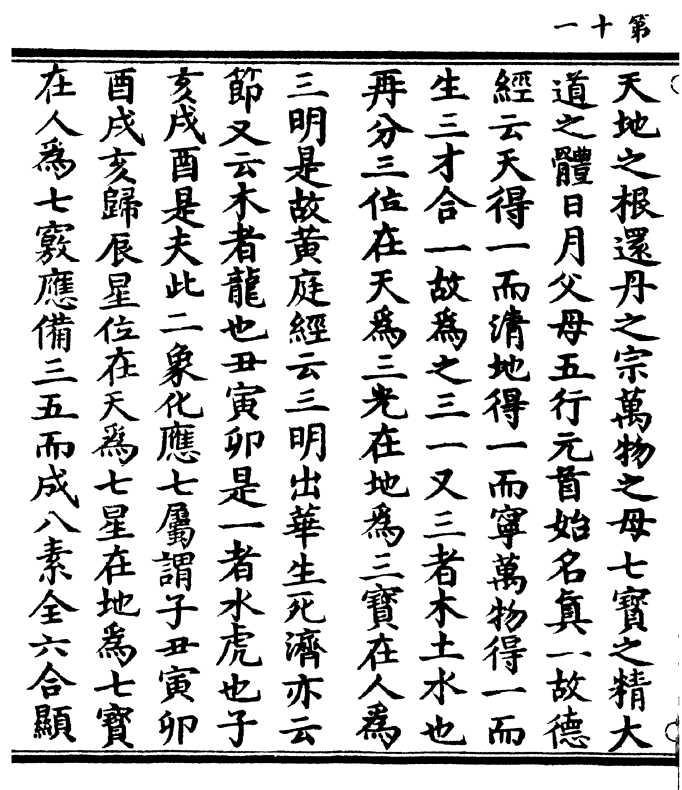 第十一
天地之根還丹之宗萬物之母七寶之精大
道之體日月父母五行元首始名真一故德
經云天得一而清地得一而寧萬物得一而
生三才合一故為之三一又三者木土水也
再分三位在天為三光在地為三寶在人為
三明是故黃庭經云三明出華生死濟亦云
節又云木者龍也丑寅卯是一者水虎也子
亥戌酉是夫此二象化應七屬謂子丑寅卯
酉戌亥歸辰星位在天為七星在地為七寶
在人為七竅應備三五而成八素全六合顯